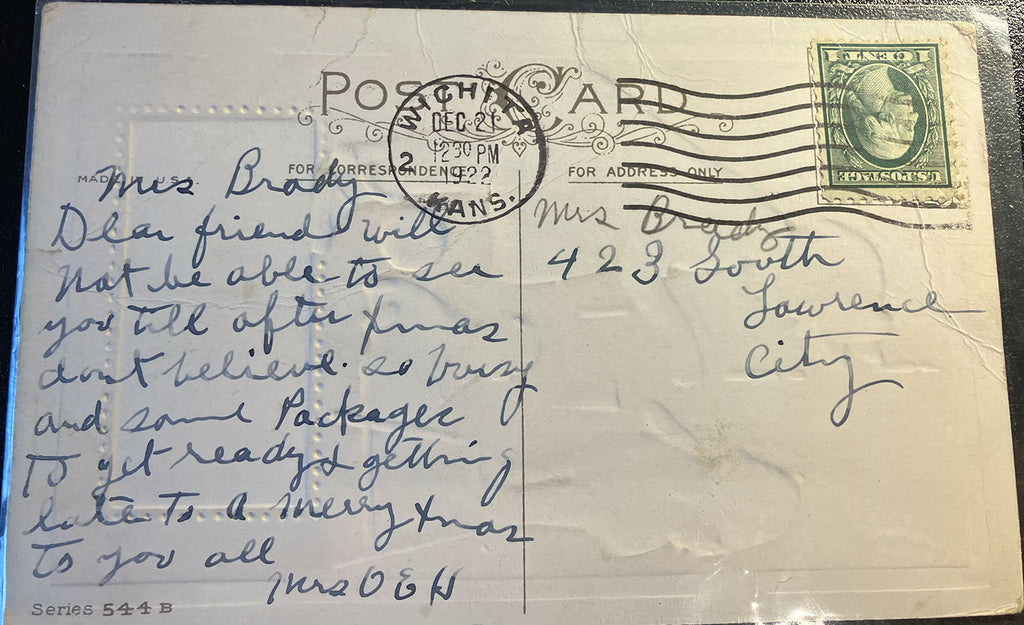 POST CARD
WICHITA
DEC 21
12 30 PM
1922
2
KANS.
ONE CENT
U.S. POSTAGE
FOR CORRESPONDENCE
FOR ADDRESS ONLY
MADE IN U.S.A.
Mrs Brady
Dear friend will
not be able to see
you till after Xmas
dont believe. so busy
and some Packages
to get ready & getting
late to A Merry Xmas
to you all
Mrs O E H
Mrs Brady
423 South
Lawrence
City
Series 544 B